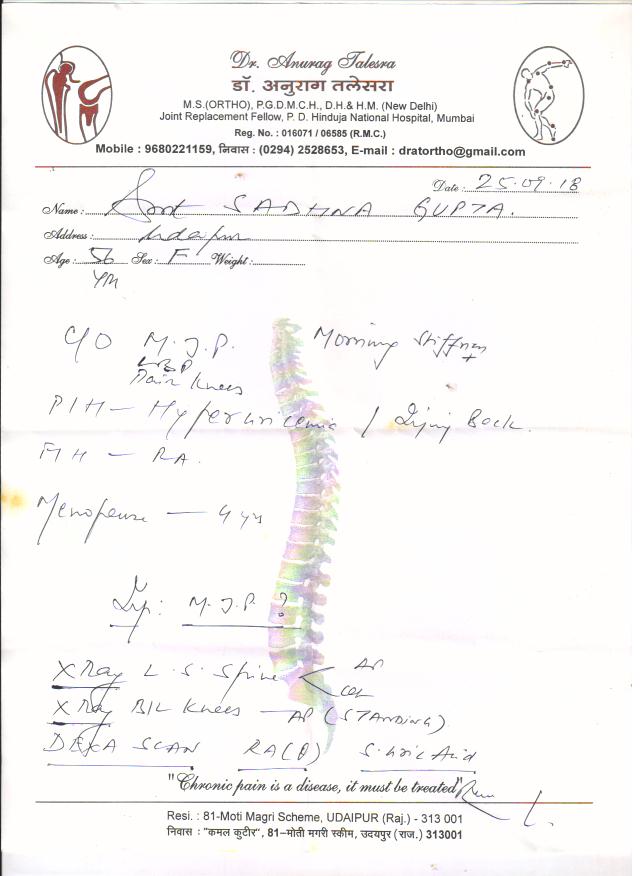 Dr. Anurag Talesra
डॉ. अनुराग तलेसरा
M.S.(ORTHO), P.G.D.M.C.H., D.H.& H.M. (New Delhi)
Joint Replacement Fellow, P. D. Hinduja National Hospital, Mumbai
Reg. No. : 016071 / 06585 (R.M.C.)
Mobile : 9680221159, निवास : (0294) 2528653, E-mail : dratortho@gmail.com
Date : 25.09.18
Name : Smt SADHNA GUPTA.
Address : Udaipur
Age : 56 Sex : F Weight :
Yrs
C/O M.J.P. Morning Stiffness +
LBP
Pain Knees
P/H - Hyperuricemic / Injury Back.
F/H - RA.
Menopause - 4 yrs
Imp: M.J.P. ?
X Ray L.S. Spine AP
X Ray B/L Knees - AP (STANDING)
DEXA SCAN RA(θ) S. Uric Acid
"Chronic pain is a disease, it must be treated"
Resi. : 81-Moti Magri Scheme, UDAIPUR (Raj.) - 313 001
निवास : "कमल कुटीर", 81–मोती मगरी स्कीम, उदयपुर (राज.) 313001